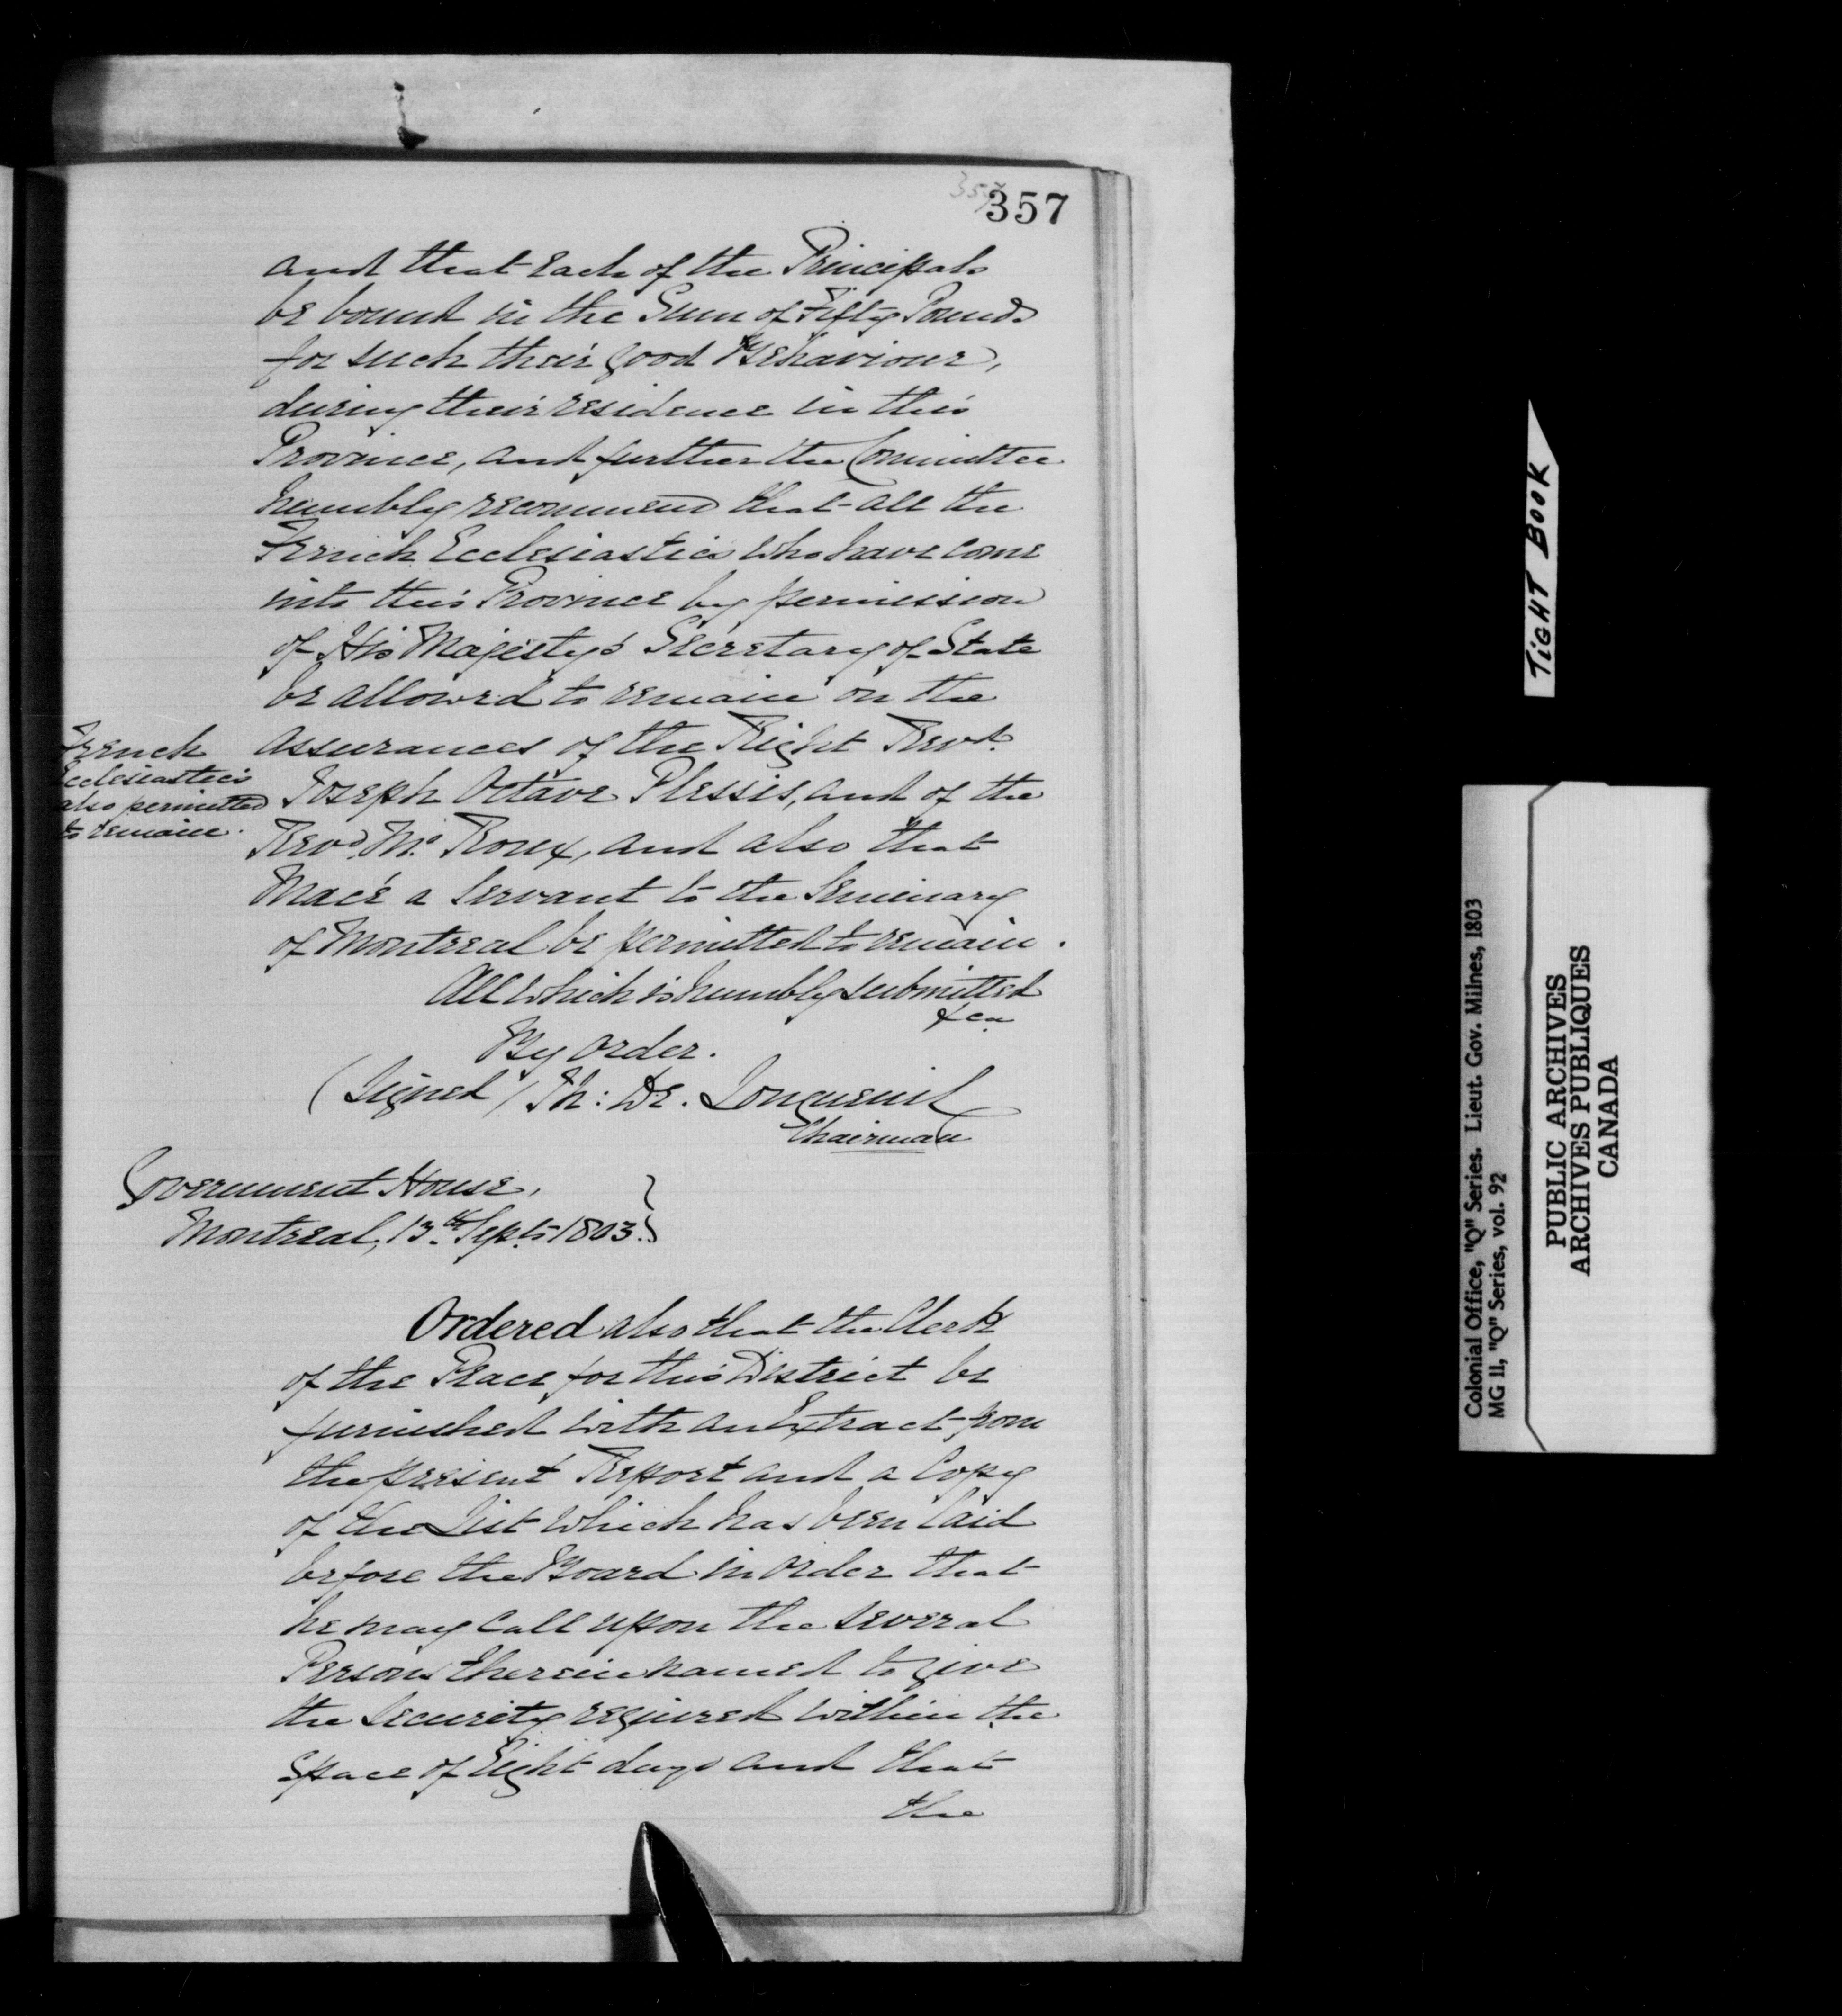 357
357
and that each of the Principals
be bound in the Sum of Fifty Pounds
for such their good Behaviour,
during their residence in this
Province, and further the Committee
humbly recommend that all the
French Ecclesiastics who have come
into this Province by permission
of His Majesty's Secretary of State
be allowed to remain on the
assurances of the Right Revd.
Joseph Octave Plessis, and of the
Revd. Mr. Roux, and also that
Macé a Servant to the Seminary
of Montreal be permitted to remain.
French
Ecclesiastics
also permitted
to remain.
All which is humbly submitted
&ca
By order.
(Signed) Th: De. Longueuil
Chairman
Government House,
Montreal, 13th Sept. 1803.
Ordered also that the Clerk
of the Peace for this District be
furnished with an Extract from
the present Report and a Copy
of the List which has been laid
before the Board in order that
he may call upon the several
Persons therein named to give
the Security required within the
space of Eight days and that
the
TIGHT BOOK
Colonial Office, "Q" Series. Lieut. Gov. Milnes, 1803
MG 11, "Q" Series, vol. 92
PUBLIC ARCHIVES
ARCHIVES PUBLIQUES
CANADA